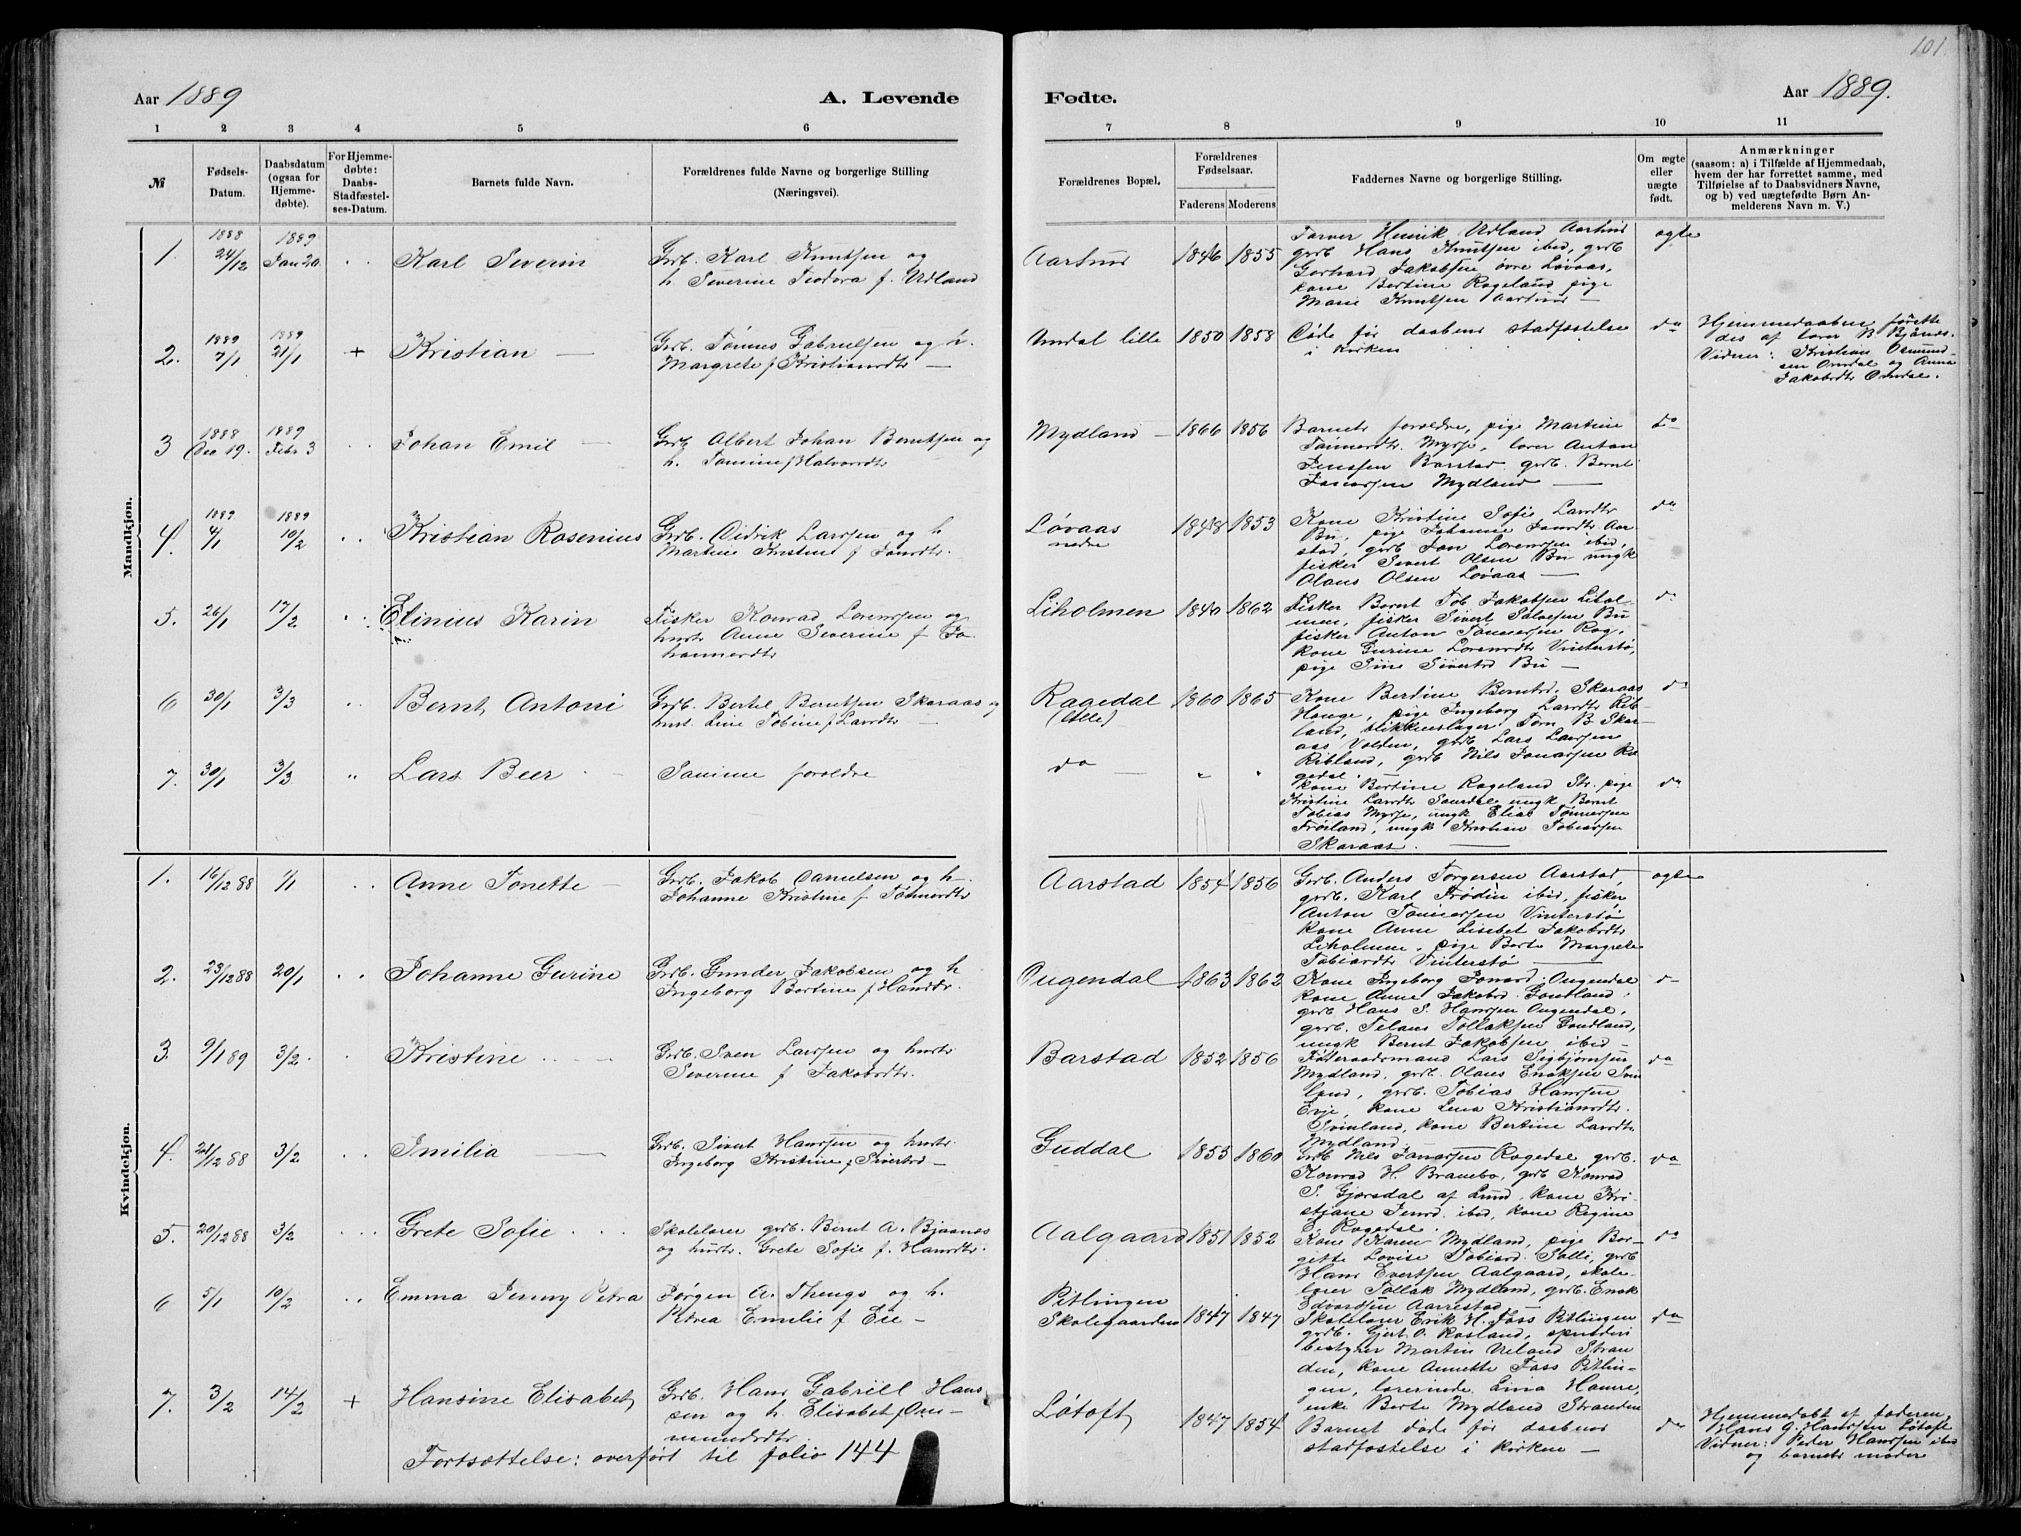 101
Aar 1889
A. Levende
Fødte.
Aar 1889.
1 2 3 4 5 6 7 8 9 10 11
№
Fødsels-
Datum.
Daabsdatum
(ogsaa for
Hjemme-
døbte).
For Hjemme-
døbte:
Daabs-
Stadfæstel-
ses-Datum.
Barnets fulde Navn.
Forældrenes fulde Navne og borgerlige Stilling
(Næringsvei).
Forældrenes Bopæl.
Forældrenes
Fødselsaar.
Faderens Moderens
Faddernes Navne og borgerlige Stilling.
Om ægte
eller
uægte
født.
Anmærkninger
(saasom: a) i Tilfælde af Hjemmedaab,
hvem der har forrettet samme, med
Tilføielse af to Daabsvidners Navne,
og b) ved uægtefødte Børn An-
melderens Navn m. V.)
Mandkjøn.
1. 1888 24/12 1889 Jan 20. Karl Severin
Grb. Karl Knutsen og
h. Severine Teodora f. Udland
Aarstad 1846 1855
Farver Henrik Udland Aarstad
grdb. Hans Knutsen ibid, grdb
Gerhard Jakobsen øvre Løvaas,
kone Bertine Rageland pige
Marie Knutsen Aarstad —
ægte
2. 1889 7/1 1889 21/1 + Kristian —
Grb. Tønnes Gabrielsen og h.
Margrete f Kristiansdtr —
Omdal lille 1850 1858
Døde før daabens stadfæstelse
i kirken
do
Hjemmedaaben forette
des af lærer B. Bjånes.
Vidner: Kristian Osmund-
sen Omdal og Anna
Jakobsdtr Omdal.
3 1888 Dec 19. 1889 Febr 3 Johan Emil —
Grb. Albert Johan Berntsen og
h. Tomine f Halvorsdtr
Mydland — 1866 1856
Barnets forældre, pige Martine
Tønnesdtr. Myrse, lærer Anton
Jenssen Barstad grdb. Bernt
Mydland —
do
4. 1889 4/1 1889 10/2 Kristian Rosenius
Grb. Didrik Larssen og h
Martine Kristine f. Jansdtr.
Løvaas
nedre
1848 1853
Kone Kristine Sofie Larsdtr
Bu, pige Johanne Jansdtr Aar-
stad, grdb Jan Lorenssen ibid,
fisker Sivert Olsen Bu ungk
Olaus Olsen Løvaas —
do
5. 26/1 17/2 Elinius Karin
Fisker Konrad Lorenssen og
hust. Anne Severine f Jo-
hannesdtr
Liholmen 1840 1862
Fisker Bernt Tob Jakobsen Lihol-
men, fisker Sivert Salvesen Bu
fisker Anton Tønnessen Rog,
kone Gurine Lorensdtr Vinterstø,
pige Sine Sivertsd Bu —
do
6 30/1 3/3 Bernt Antoni
Grb. Bertel Berntsen Skaraas og
hust. Line Tobine f Larsdtr —
Ragedal
(Ulle)
1860 1865
Kone Bertine Berntsd. Skaraas
Hauge, pige Ingeborg Larsdtr Rib-
land, blikkenslager Tørn B. Skar-
aas Volden, grdb Lars Larssen
Ribland, grdb Nils Jonassen Ra
gedal.
do
7. 30/1 3/3 " Lars Beer
Samme forældre
do — " "
Kone Bertine Rageland Str. pige
Kristine Larsdtr ungk Bernt
Tobias Myrse, ungk Elias Tønnessen
Frøiland, ungk Kristian Tobiassen
Skaraas. —
do
Kvindekjøn.
1. 16/12 88 1/1 Anne Tonette —
Grb. Jakob Danielsen og h.
Johanne Kristine f Tønnesdtr
Aarstad 1854 1856
Grb. Anders Torgersen Aarstad,
grdb. Karl Frødin ibid, fisker
Anton Tønnessen Vinterstø
kone Anne Lisebet Jakobsdtr
Liholmen, pige Berte Margrete
Tobiasdtr Vinterstø —
ægte
2. 23/12 88 20/1 Johanne Gurine
Grb. Gunder Jakobsen og h
Ingeborg Bertine f Hansdtr.
Ougendal 1863 1862
Kone Ingeborg Jonasd. Ougendal
kone Anne Jakobsd. Goudland,
grdb Hans S. Hanssen Ougendal,
grdb. Telans Tollaksen Goudland,
ungk Bernt Jakobsen ibid —
3. 9/1 89 3/2. Kristine
Grb. Sven Larssen og hust.
Severine f Jakobsdtr.
Barstad 1852 1856
Føderaadsmand Lars Sigbjørnsen
Mydland, grdb. Olaus Enoksen Svin
land, grdb. Tobias Hanssen
Evje, kone Lena Kristiansdtr.
Svinland, kone Bertine Larsdtr
Mydland —
do
4. 21/12 88 3/2 Imilia —
Grb. Sivert Hanssen og hust.
Ingeborg Kristine f Sivertsd —
Guddal 1855 1860
Grb Nils Jonassen Ragedal grdb.
Konrad H. Branebo, grdb Konrad
S. Gjersdal af Lund, kone Kri-
stiane Jensd. ibid, kone Regine
E. Ragedal.
do
5. 20/12 88 3/2 Grete Sofie
Skolelærer grdb. Bernt A. Bjaanes
og hust. Grete Sofie f. Hansdtr.
Aalgaard 1851 1852
Kone Karen Mydland, pige Bor-
gitte Lovise Tobiasd. Salli, grdb
Hans Evertsen Aalgaard, skole-
lærer Tollak Mydland, grdb. Enok
Edvardsen Aarrestad
do
6 5/1 10/2 Emma Jenny Petra
Jørgen A. Thengs og h.
Petrea Emilie f Eie —
Pitlingen
Skolegaarden
1847 1847
Skolelærer Erik H. Foss Pitlingen
grdb. Gjert O. Rosland, sprederi
bestyrer Martin Ureland Stran
den, kone Annette Foss Pitlin-
gen, lærerinde Lina Hamre,
enke Berte Mydland Stranden
do
7. 3/2 14/2 + Hansine Elisabet
Grb. Hans Gabriell Hans
sen og h. Elisabet f Om-
mundsdtr
Løtoft 1847 1854
Barnet døde før daabens
stadfæstelse i kirken —
do
Hjemmedøbt af faderen
Hans G. Hanssen Løtoft
Vidner: Peder Hanssen ibid
og barnets moder
Fortsættelse: overført til folio 144